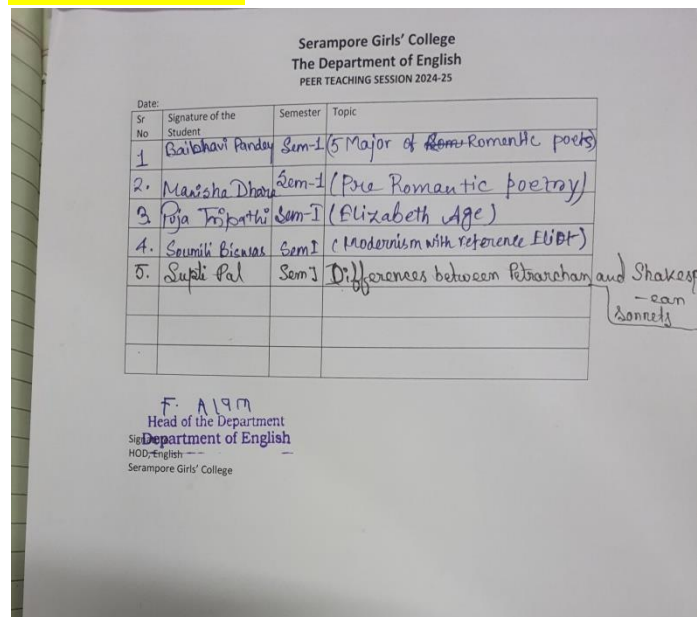 Serampore Girls' College
The Department of English
PEER TEACHING SESSION 2024-25
Date:
Sr No Signature of the Student Semester Topic
1 Baibhavi Pandey Sem-1 (5 Major of Romantic poets)
2. Manisha Dhara Sem-1 (Pre Romantic poetry)
3. Puja Tripathi Sem-I (Elizabeth Age)
4. Soumili Biswas Sem I (Modernism with reference Eliot)
5. Supti Pal Sem I Differences between Petrarchan and Shakesp
-ean
Sonnets
F. Alam
Head of the Department
Department of English
HOD, English
Serampore Girls' College